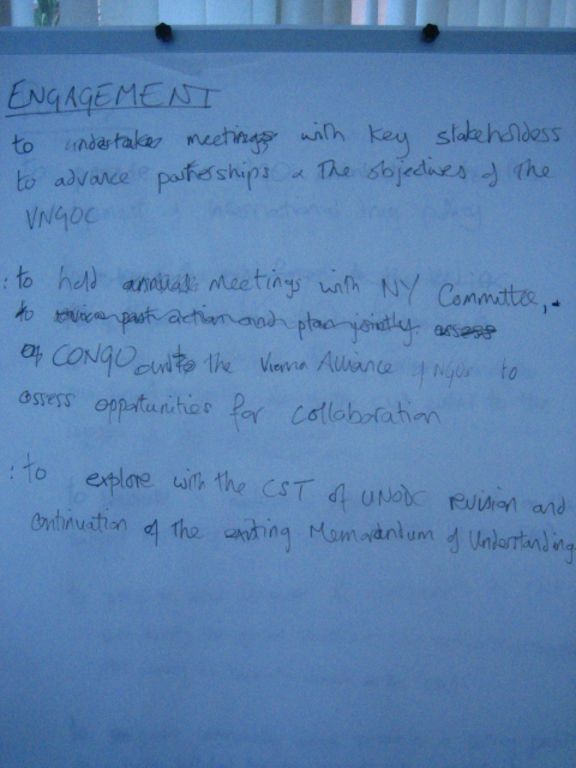 ENGAGEMENT
to undertake meetings with key stakeholders
to advance partnerships & the objectives of the
VNGOC
: to hold annual meetings with NY Committee,
to review past action and plan jointly. assess
of CONGO and to the Vienna Alliance of NGOs to
assess opportunities for collaboration
: to explore with the CST of UNODC revision and
continuation of the existing Memorandum of Understanding